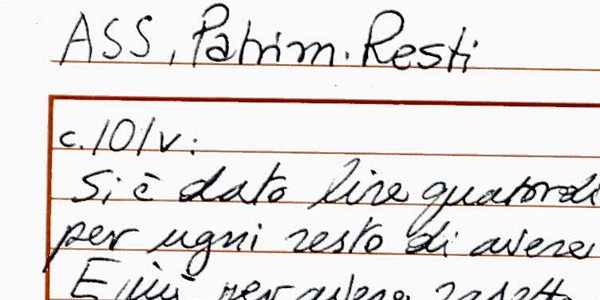 ASS, Patrim. Resti
c. 101v:
Si è dato lire quatordi
per ugni resto di avere
E più per avere